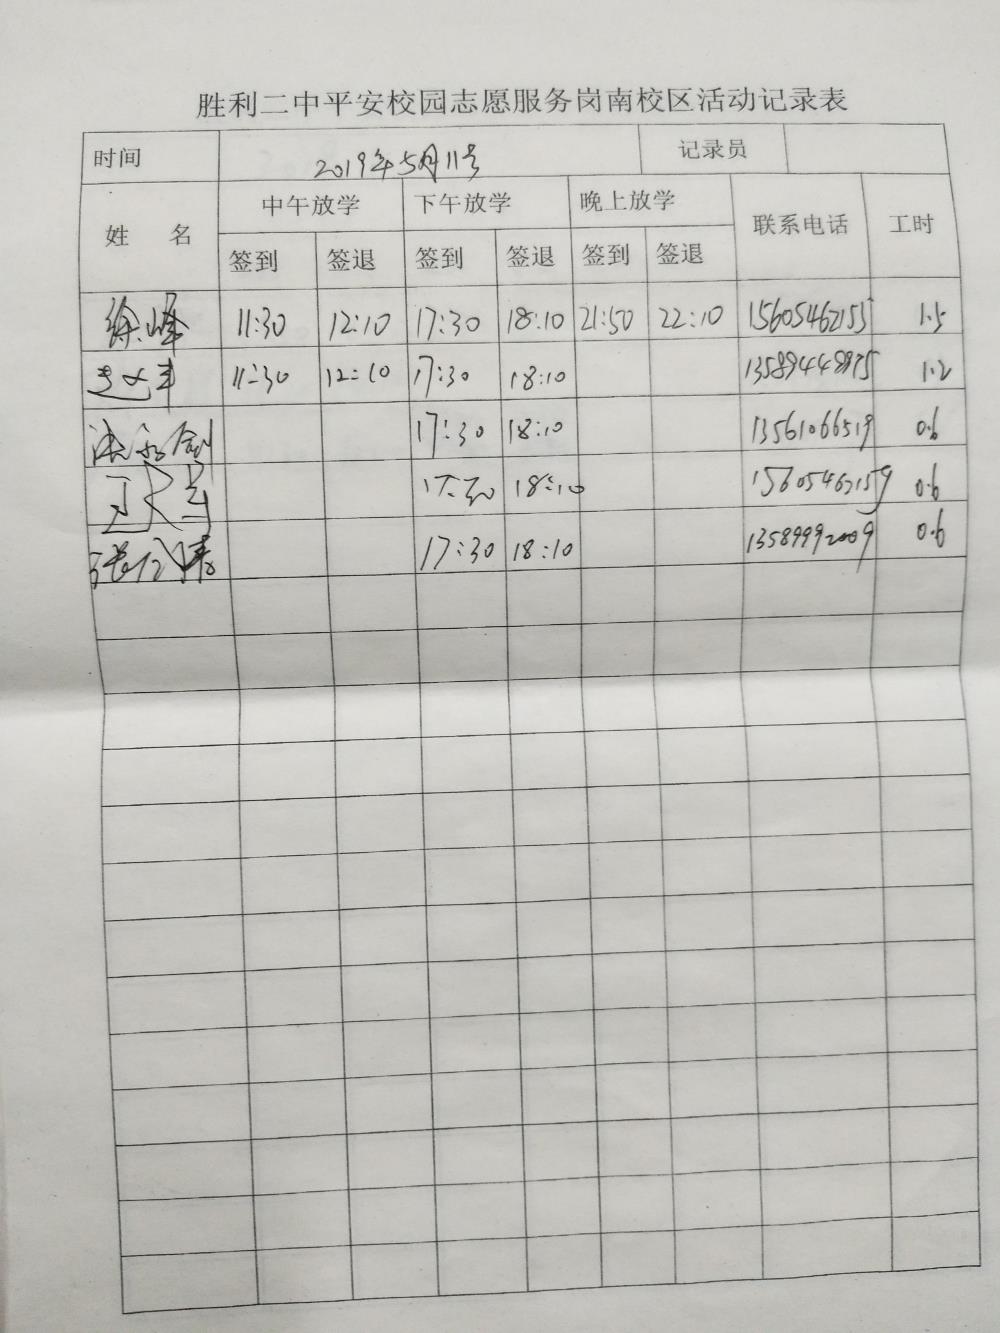 胜利二中平安校园志愿服务岗南校区活动记录表
时间 2019年5月11号 记录员
姓 名 中午放学 下午放学 晚上放学 联系电话 工时
签到 签退 签到 签退 签到 签退
徐峰 11:30 12:10 17:30 18:10 21:50 22:10 15605462155 1.5
11:30 12:10 17:30 18:10 1.2
17:30 18:10 13561066519 0.6
17:30 18:10 15605462159 0.6
17:30 18:10 13589992009 0.6